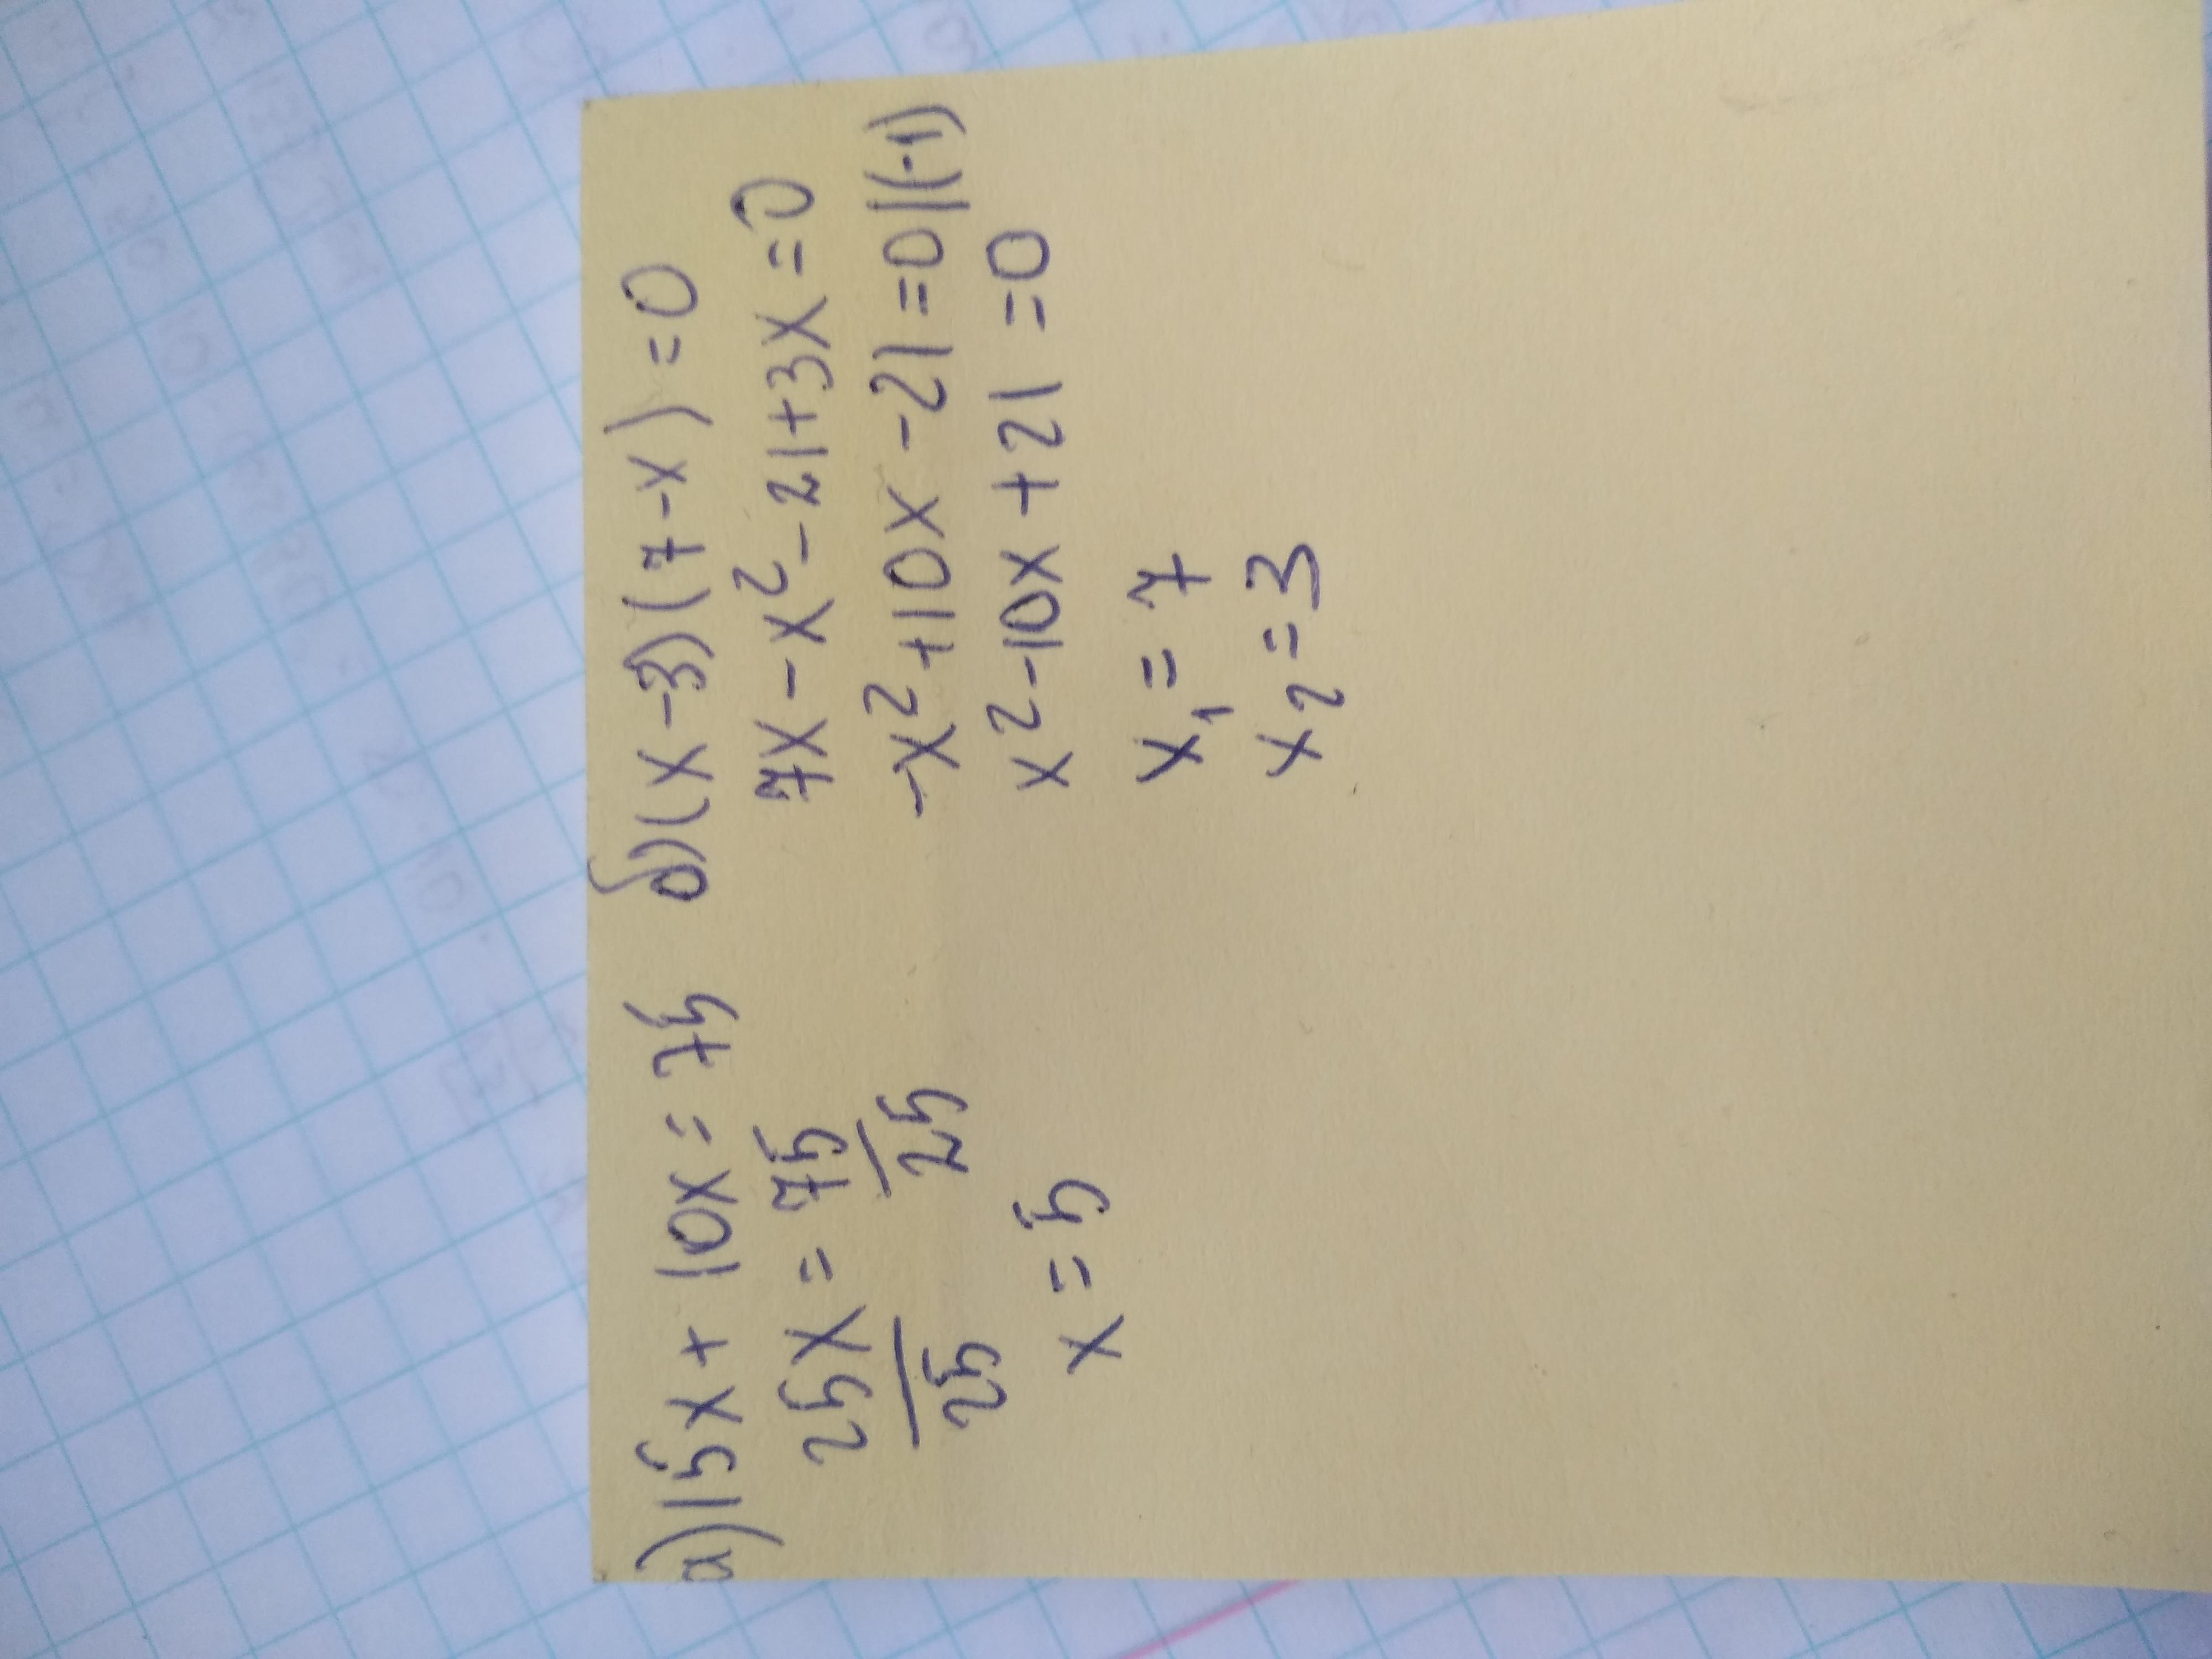 а) 15x + 10x = 75
25x = 75
25 25
x = 5
б) (x-3)(7-x) = 0
7x - x² - 21 + 3x = 0
-x² + 10x - 21 = 0 |(-1)
x² - 10x + 21 = 0
x₁ = 7
x₂ = 3